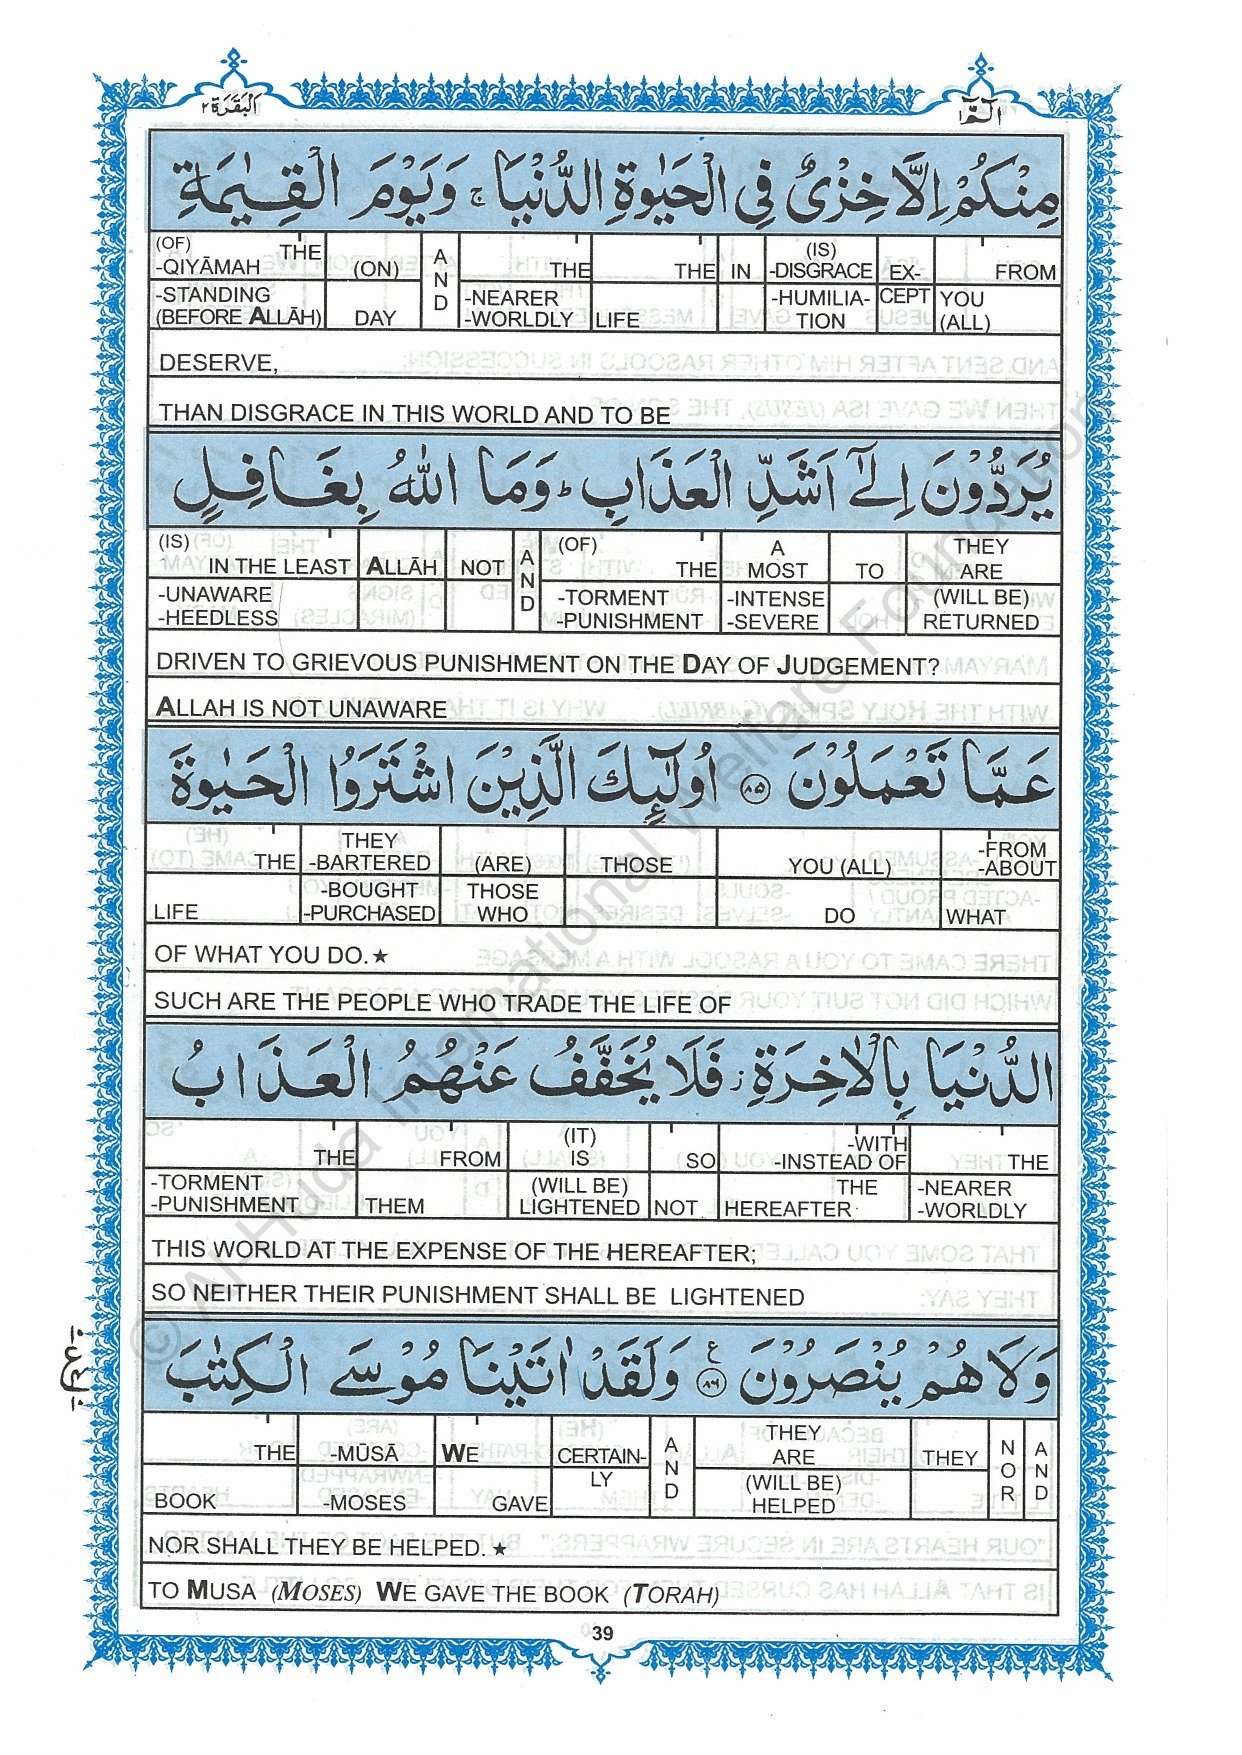 الٓمّٓ ١
اَلْبَقَرَة ٢
مِنْكُمْ اِلَّا خِزْىٌ فِى الْحَيٰوةِ الدُّنْيَا ۚ وَيَوْمَ الْقِيٰمَةِ
(OF) -QIYĀMAH THE (ON) AND THE THE IN (IS) -DISGRACE EX- FROM
-STANDING (BEFORE ALLĀH) DAY -NEARER -WORLDLY LIFE -HUMILIA- TION CEPT YOU (ALL)
DESERVE,
THAN DISGRACE IN THIS WORLD AND TO BE
يُرَدُّوْنَ اِلٰٓى اَشَدِّ الْعَذَابِ ؕ وَمَا اللّٰهُ بِغَافِلٍ
(IS) IN THE LEAST ALLĀH NOT AND (OF) THE A MOST TO THEY ARE
-UNAWARE -HEEDLESS -TORMENT -PUNISHMENT -INTENSE -SEVERE (WILL BE) RETURNED
DRIVEN TO GRIEVOUS PUNISHMENT ON THE DAY OF JUDGEMENT?
ALLAH IS NOT UNAWARE
عَمَّا تَعْمَلُوْنَ ﴿٨٥﴾ اُولٰٓئِكَ الَّذِيْنَ اشْتَرَوُا الْحَيٰوةَ
THE THEY -BARTERED (ARE) THOSE YOU (ALL) -FROM -ABOUT
LIFE -BOUGHT -PURCHASED THOSE WHO DO WHAT
OF WHAT YOU DO.★
SUCH ARE THE PEOPLE WHO TRADE THE LIFE OF
الدُّنْيَا بِالْاٰخِرَةِ ۫ فَلَا يُخَفَّفُ عَنْهُمُ الْعَذَابُ
THE FROM (IT) IS SO -WITH -INSTEAD OF THE
-TORMENT -PUNISHMENT THEM (WILL BE) LIGHTENED NOT THE HEREAFTER -NEARER -WORLDLY
THIS WORLD AT THE EXPENSE OF THE HEREAFTER;
SO NEITHER THEIR PUNISHMENT SHALL BE LIGHTENED
وَلَا هُمْ يُنْصَرُوْنَ ﴿٨٦﴾ ع وَلَقَدْ اٰتَيْنَا مُوْسَى الْكِتٰبَ
THE -MŪSĀ WE CERTAIN- AND THEY ARE THEY NOR AND
BOOK -MOSES GAVE LY (WILL BE) HELPED
NOR SHALL THEY BE HELPED.★
TO MUSA (MOSES) WE GAVE THE BOOK (TORAH)
39
© Al-Huda International Welfare Foundation